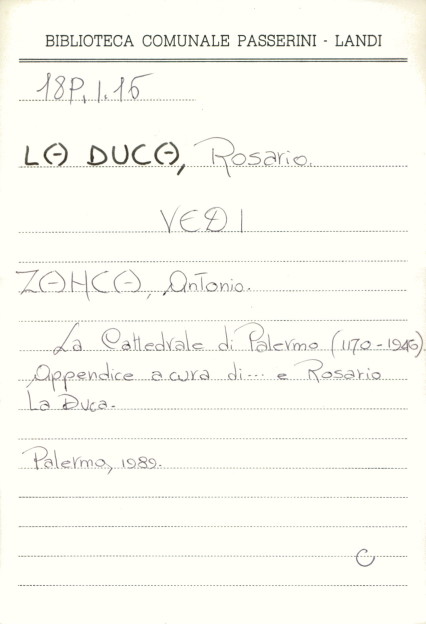 BIBLIOTECA COMUNALE PASSERINI - LANDI
18P. I. 15
LA DUCA, Rosario.
VEDI
ZANCA, Antonio.
La Cattedrale di Palermo (1170-1946).
Appendice a cura di... e Rosario
La Duca.
Palermo, 1989.
C